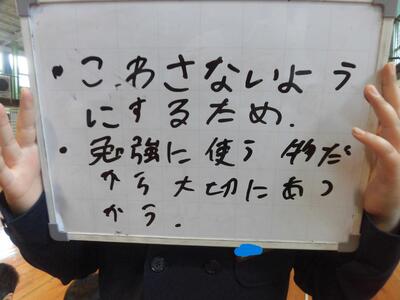 ・こわさないよう
にするため.
・勉強に使う物だ
から大切にあつ
かう.